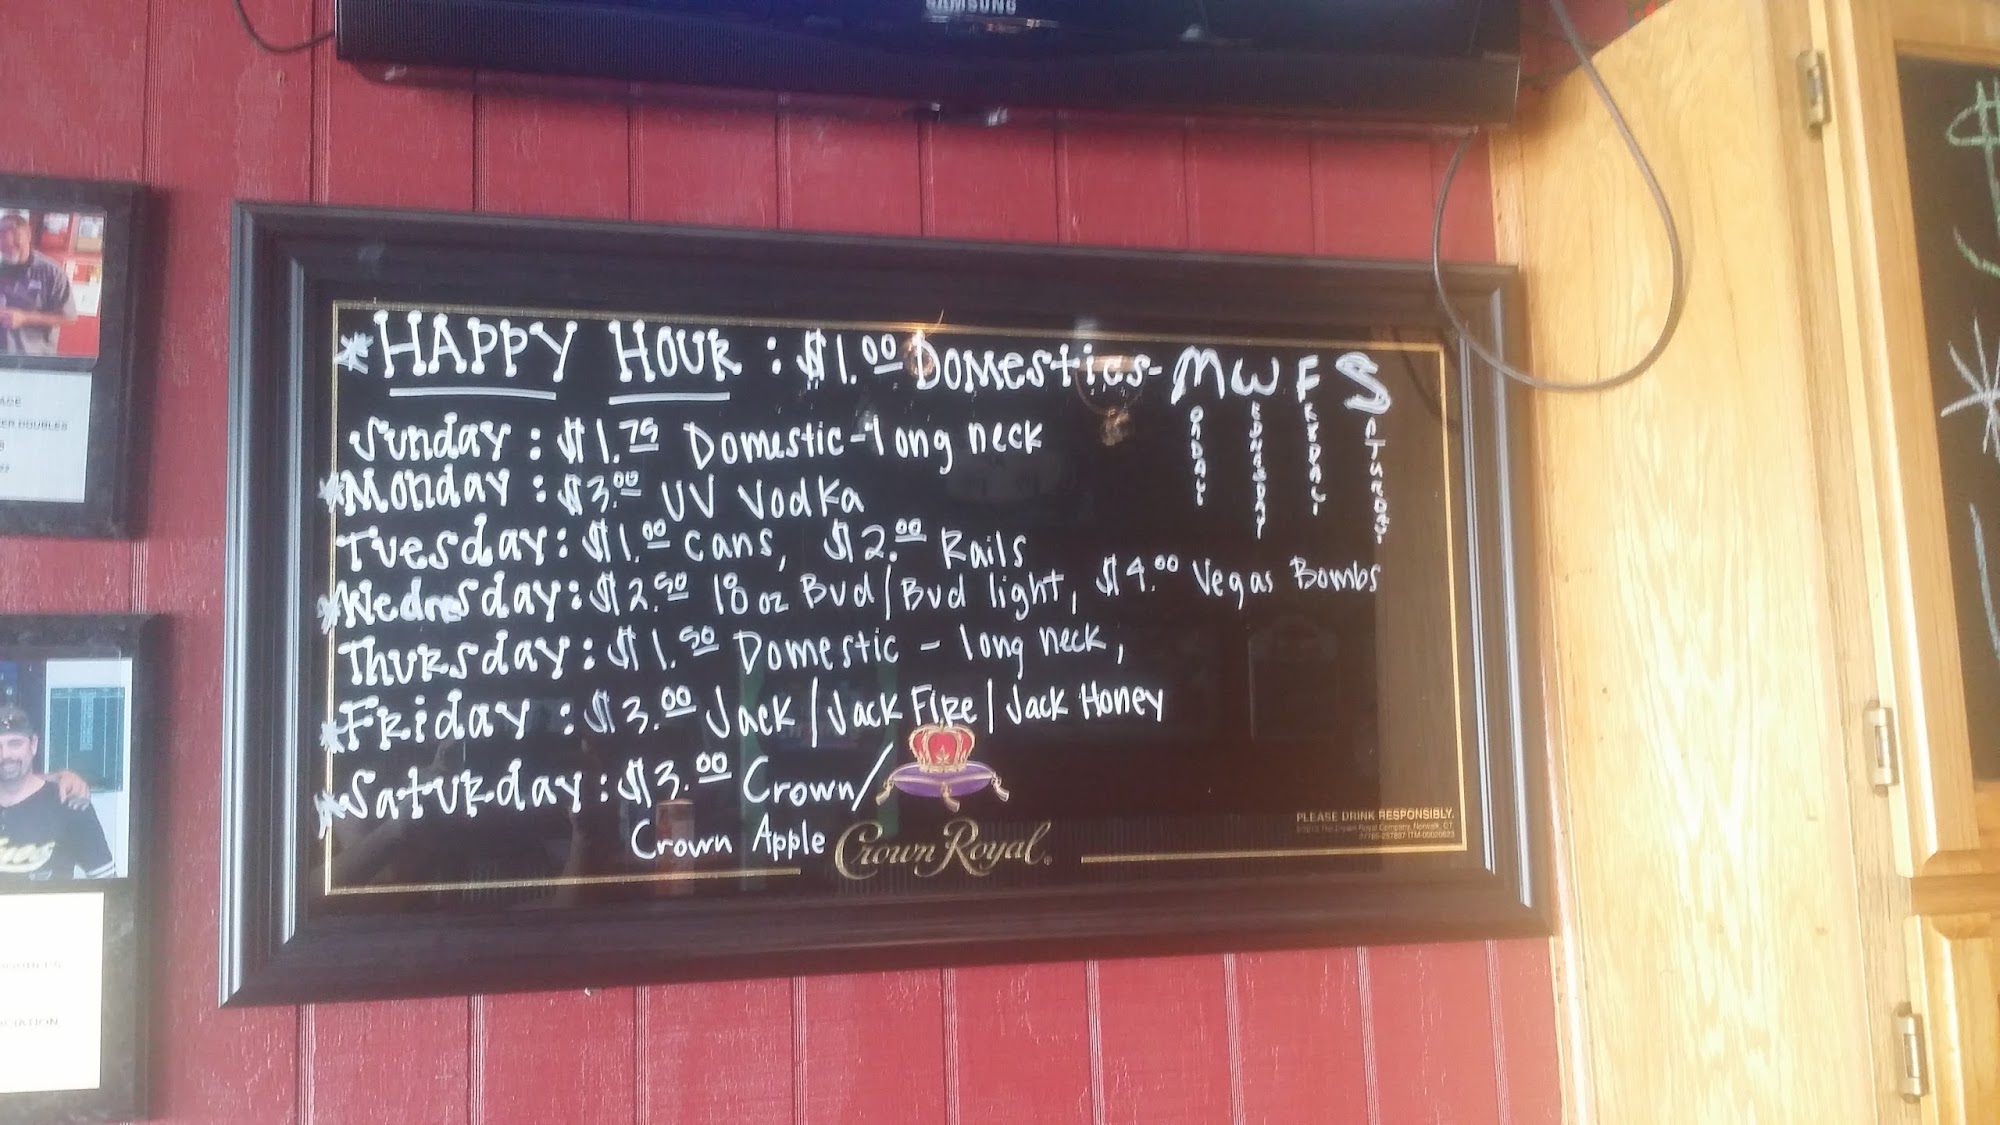 SAMSUNG
* HAPPY HOUR : $1.00 Domestics - M W F S
ONDAY
EDNESDAY
RIDAY
ATURDAY
Sunday : $1.75 Domestic - long neck
* Monday : $3.00 UV Vodka
Tuesday : $1.00 cans, $2.00 Rails
* Wednesday : $2.50 18 oz Bud / Bud light, $4.00 Vegas Bombs
Thursday : $1.50 Domestic - long neck,
* Friday : $3.00 Jack / Jack Fire / Jack Honey
* Saturday : $3.00 Crown /
Crown Apple
Crown Royal
PLEASE DRINK RESPONSIBLY.